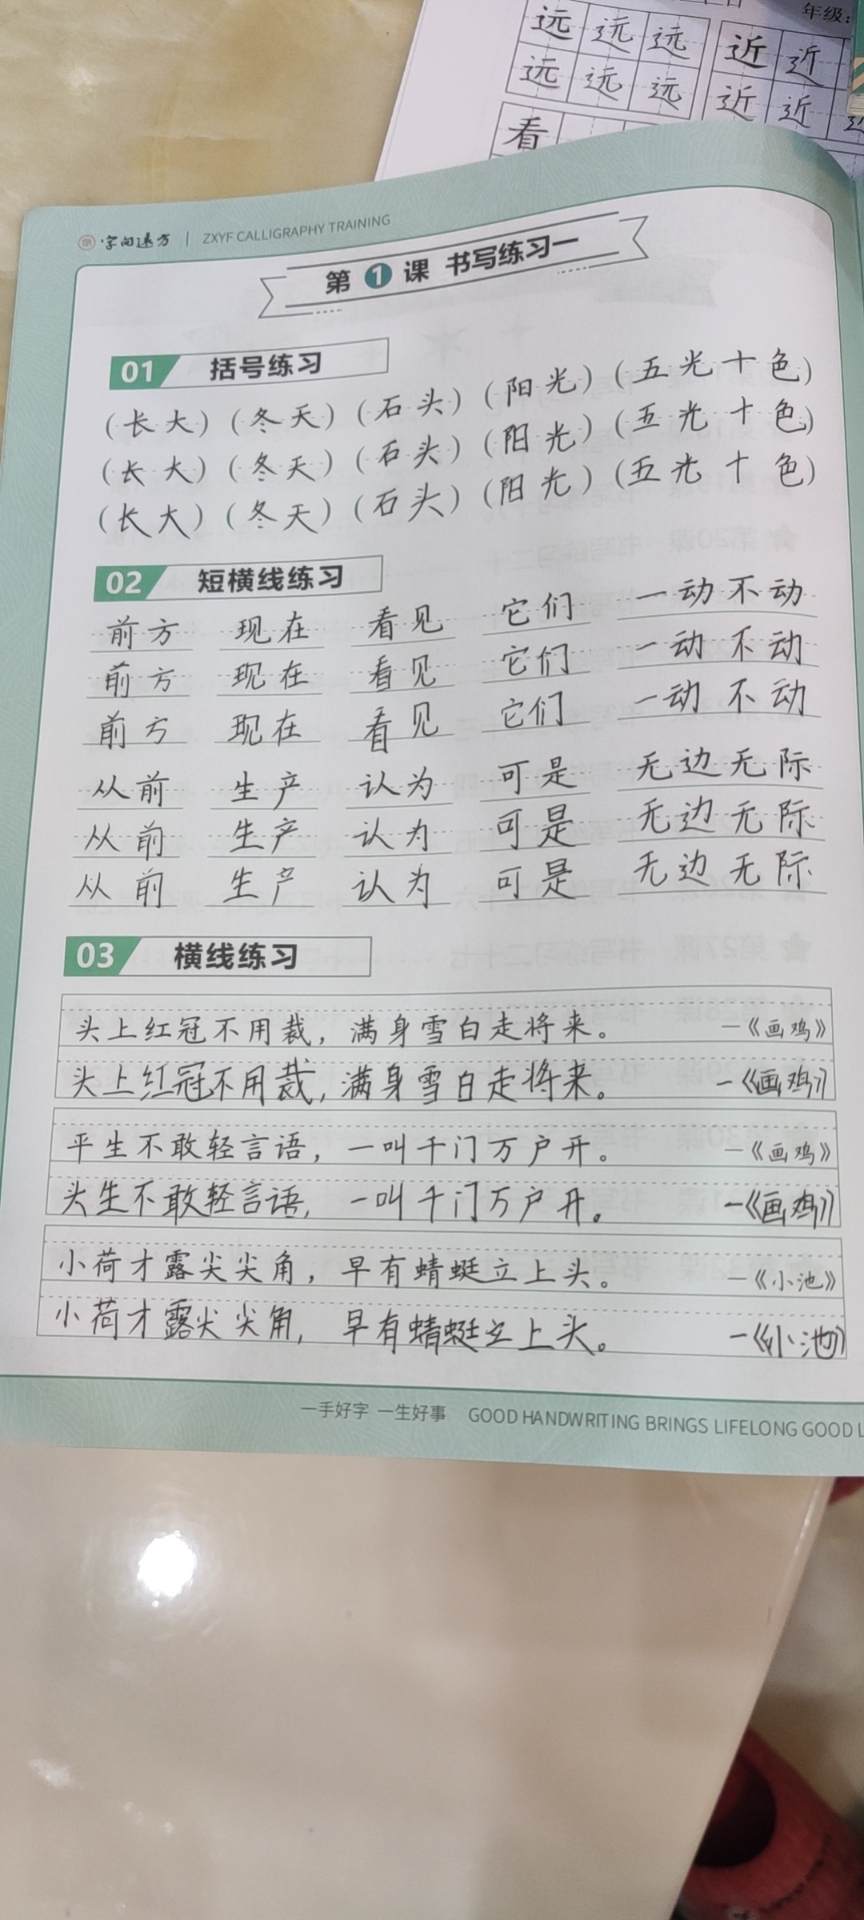 年级：
远 远 远 近 近
远 远 远 近 近
看
字向远方 | ZXYF CALLIGRAPHY TRAINING
第1课 书写练习一
01 括号练习
(长大) (冬天) (石头) (阳光) (五光十色)
(长大) (冬天) (石头) (阳光) (五光十色)
(长大) (冬天) (石头) (阳光) (五光十色)
02 短横线练习
前方 现在 看见 它们 一动不动
前方 现在 看见 它们 一动不动
前方 现在 看见 它们 一动不动
从前 生产 认为 可是 无边无际
从前 生产 认为 可是 无边无际
从前 生产 认为 可是 无边无际
03 横线练习
头上红冠不用裁，满身雪白走将来。 —《画鸡》
头上红冠不用裁，满身雪白走将来。 —《画鸡》
平生不敢轻言语，一叫千门万户开。 —《画鸡》
头生不敢轻言语，一叫千门万户开。 —《画鸡》
小荷才露尖尖角，早有蜻蜓立上头。 —《小池》
小荷才露尖尖角，早有蜻蜓立上头。 —《小池》
一手好字 一生好事 GOOD HANDWRITING BRINGS LIFELONG GOOD